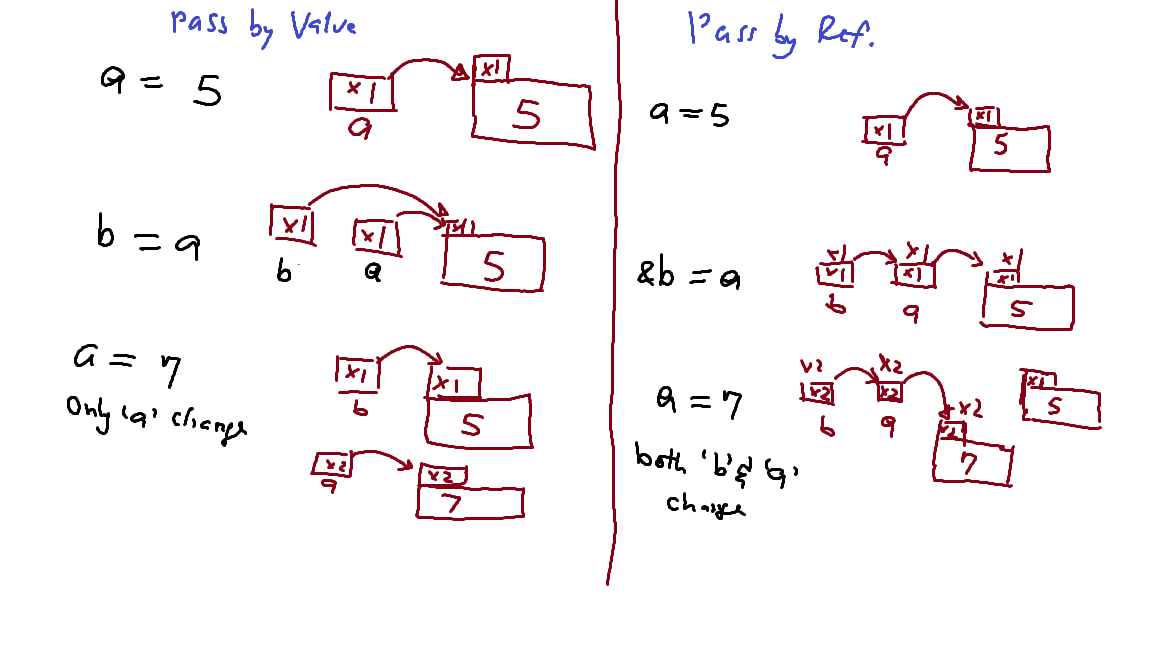 Pass by Value
a = 5
x1
x1
5
a
b = a
x1
x1
x1
5
b
a
a = 7
Only 'a' change
x1
x1
5
b
x2
x2
7
a
Pass by Ref.
a = 5
x1
x1
5
a
&b = a
x1
x1
x1
x1
x1
x1
5
b
a
a = 7
both 'b' & 'a'
change
x2
x2
x2
x2
x2
x2
7
b
a
x1
5